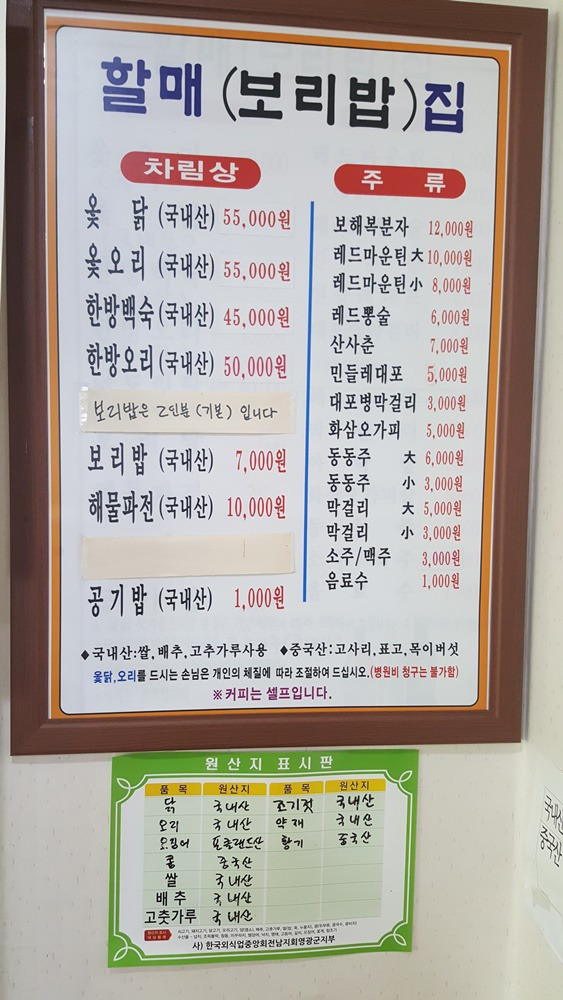 할매 (보리밥)집
차림상
옻 닭 (국내산) 55,000원
옻오리 (국내산) 55,000원
한방백숙 (국내산) 45,000원
한방오리 (국내산) 50,000원
보리밥은 2인분 (기본) 입니다
보리밥 (국내산) 7,000원
해물파전 (국내산) 10,000원
공기밥 (국내산) 1,000원
주 류
보해복분자 12,000원
레드마운틴 大 10,000원
레드마운틴 小 8,000원
레드뽕술 6,000원
산사춘 7,000원
민들레대포 5,000원
대포병막걸리 3,000원
화삼오가피 5,000원
동동주 大 6,000원
동동주 小 3,000원
막걸리 大 5,000원
막걸리 小 3,000원
소주/맥주 3,000원
음료수 1,000원
◆국내산:쌀,배추,고추가루사용 ◆중국산:고사리,표고,목이버섯
옻닭,오리를 드시는 손님은 개인의 체질에 따라 조절하여 드십시오.(병원비 청구는 불가함)
※커피는 셀프입니다.
원산지 표시판
품 목 원산지 품 목 원산지
닭 국내산 조기젓 국내산
오리 국내산 약재 국내산
오징어 포클랜드산 황기 중국산
콩 중국산
쌀 국내산
배추 국내산
고춧가루 국내산
사) 한국외식업중앙회전남지회영광군지부
국내산
중국산